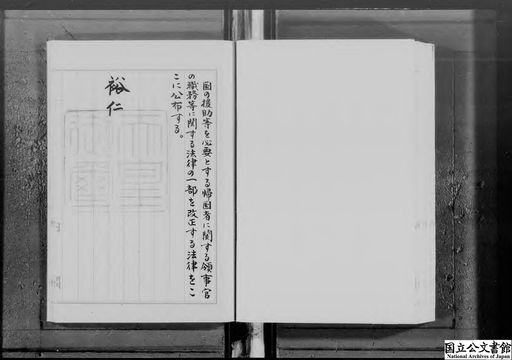 国の援助等を必要とする帰国者に関する領事官
の職務等に関する法律の一部を改正する法律をこ
こに公布する。
裕仁
天皇
御璽
国立公文書館
National Archives of Japan